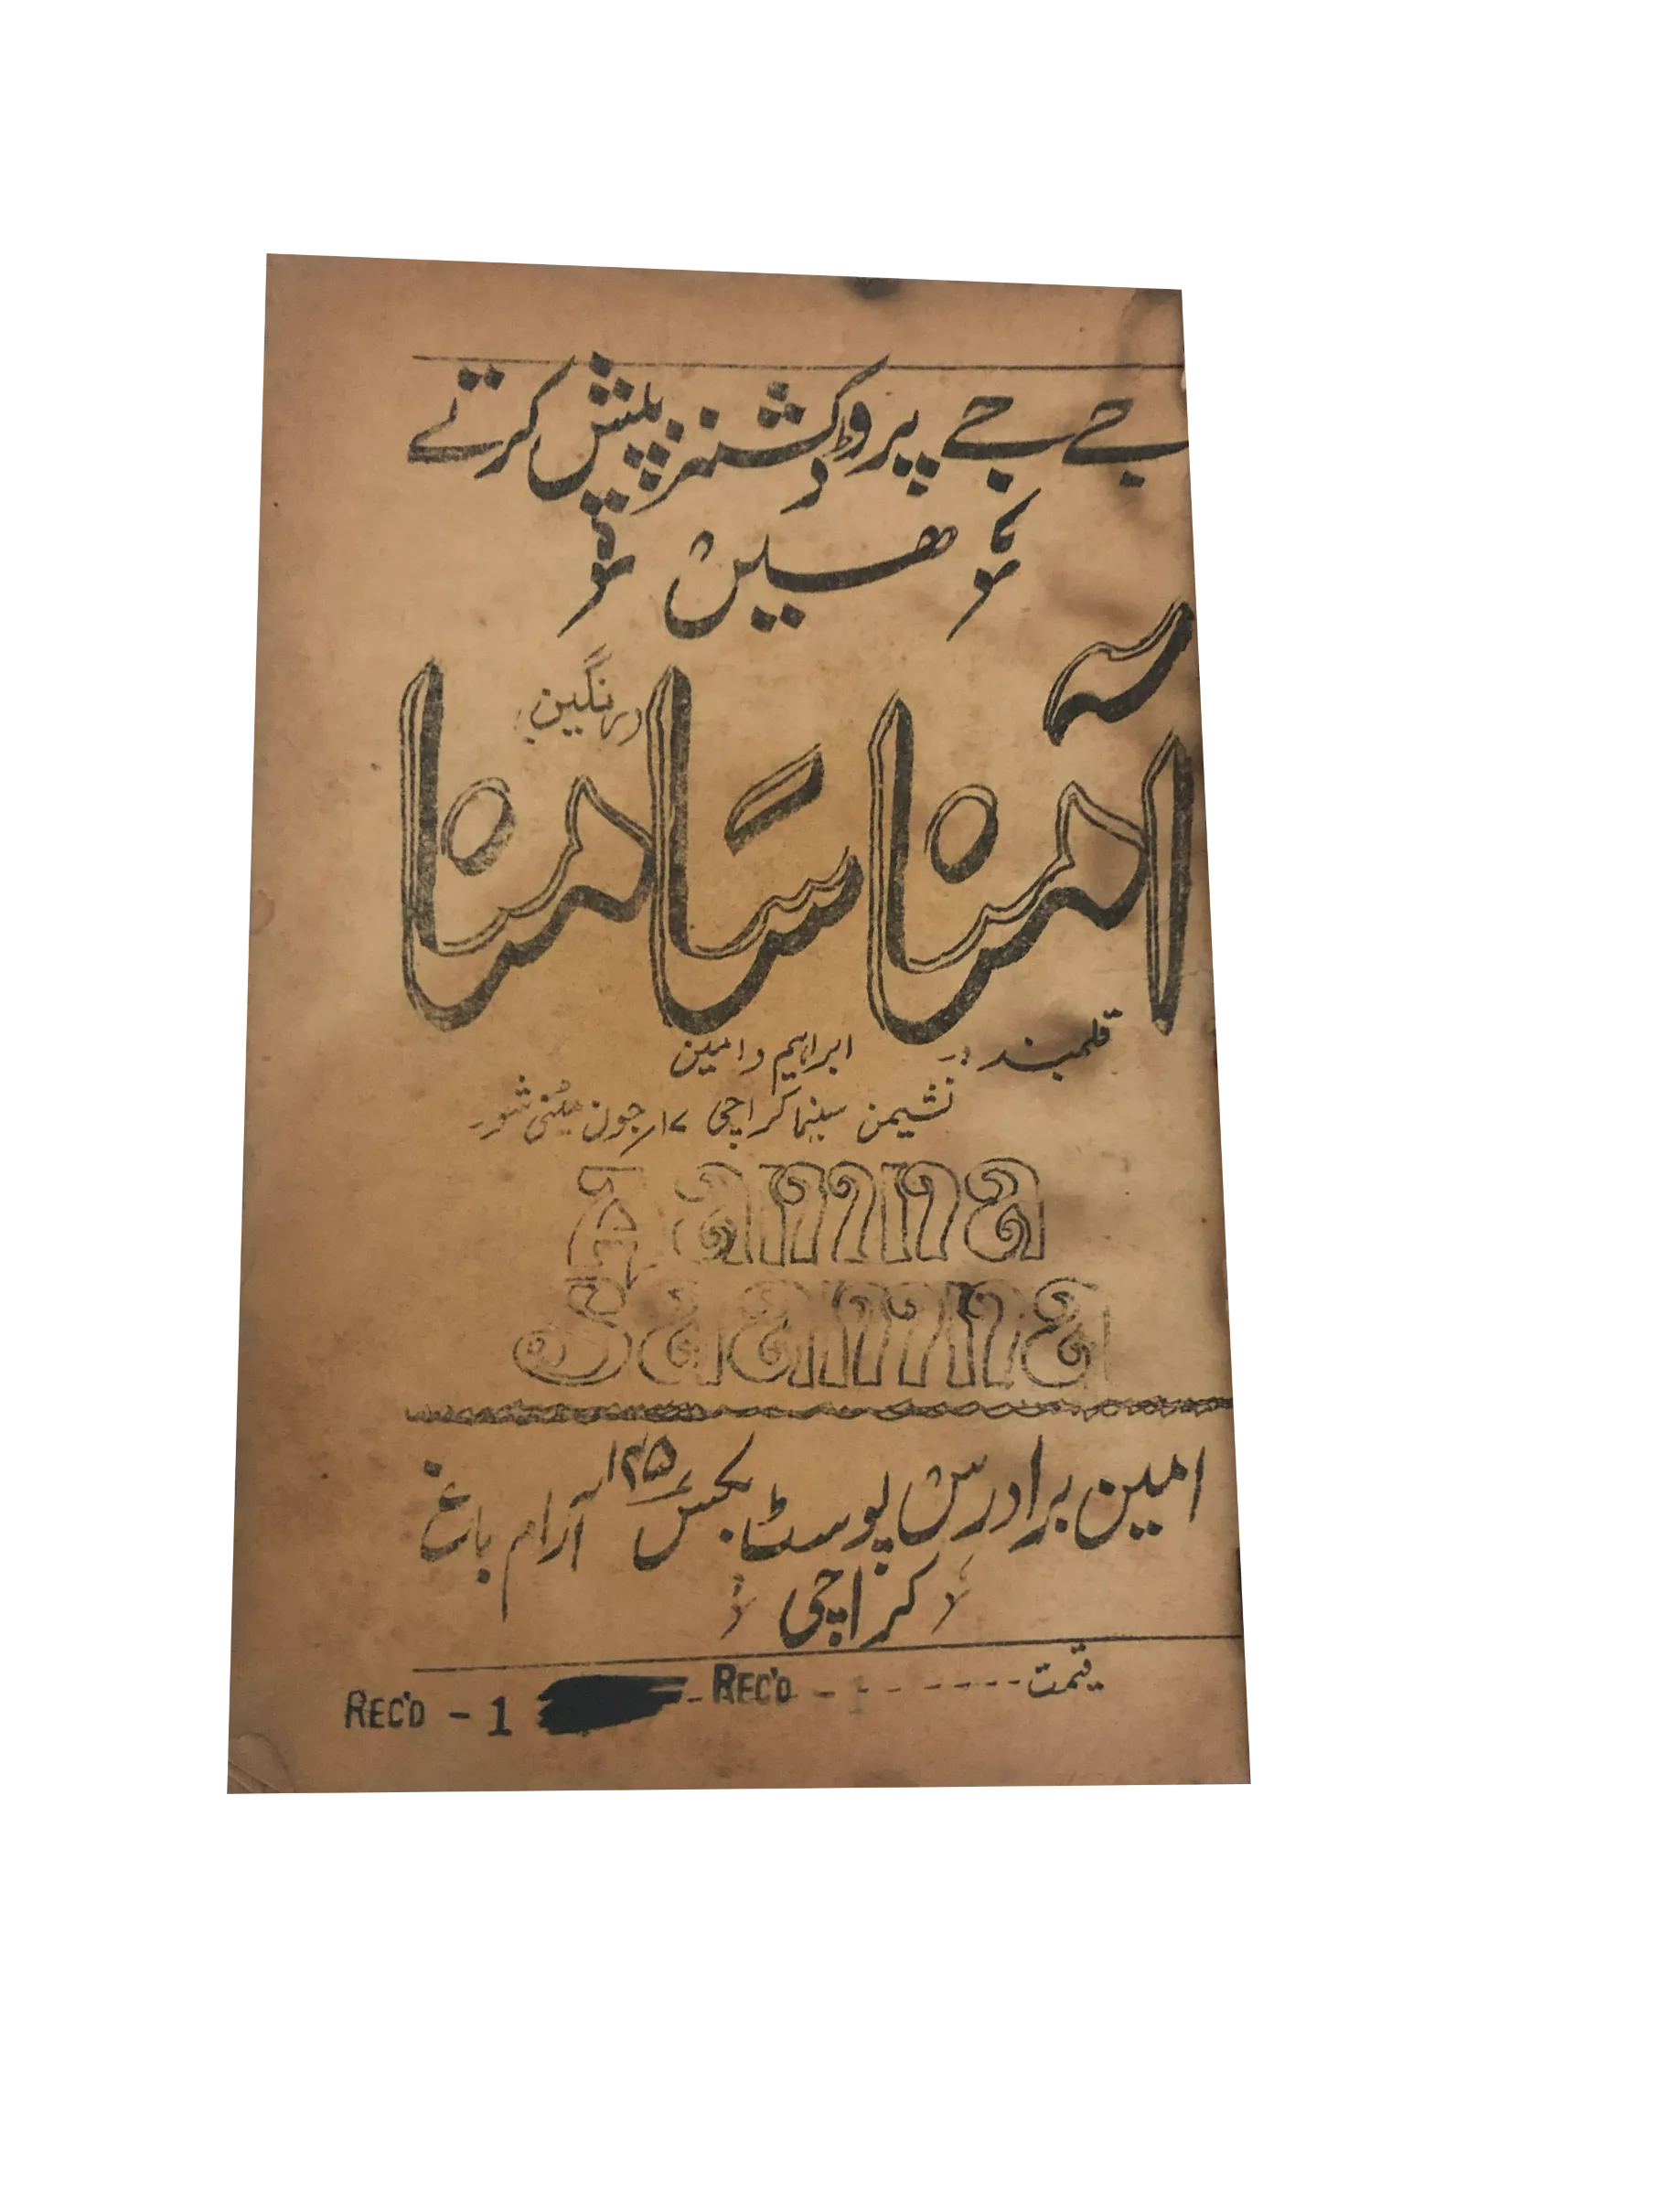 جے جے پروڈکشنز پیش کرتے
ھیں
آمنا سامنا
رنگین
قلمبند :- ابراہیم و امین
نشیمن سینما کراچی ۱۷/جون میٹنی شور
Aamna
Saamna
امین برادرس پوسٹ بکس ۱۲۵ آرام باغ
کراچی
قیمت ------ - REC'D
REC'D - 1